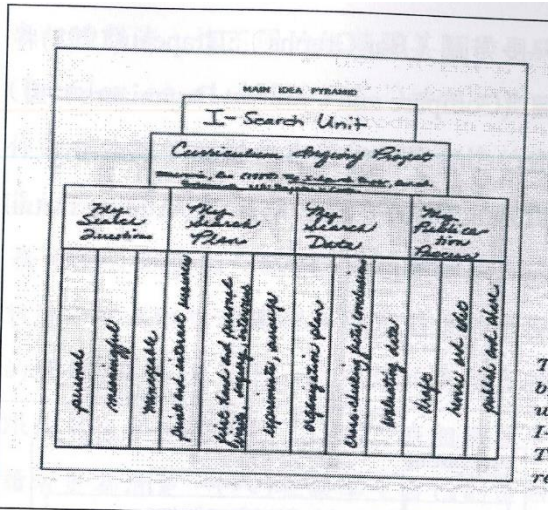 MAIN IDEA PYRAMID
I-Search Unit
Curriculum Inquiry Project
My
Search
Questions
My
Search
Plan
My
Search
Data
My
Publica-
tion
Process
personal
meaningful
manageable
print and internet resources
first hand and personal
inquiry, interviews
experiments, surveys
organization plan
cross-checking facts, conclusions
evaluating data
draft
revise and edit
publish and share
T
b
u
I-
T
re